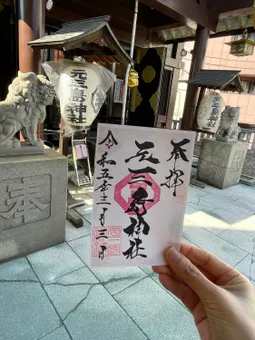 奉拝
元三島神社
令和五年三月三日
元三島神社
奉